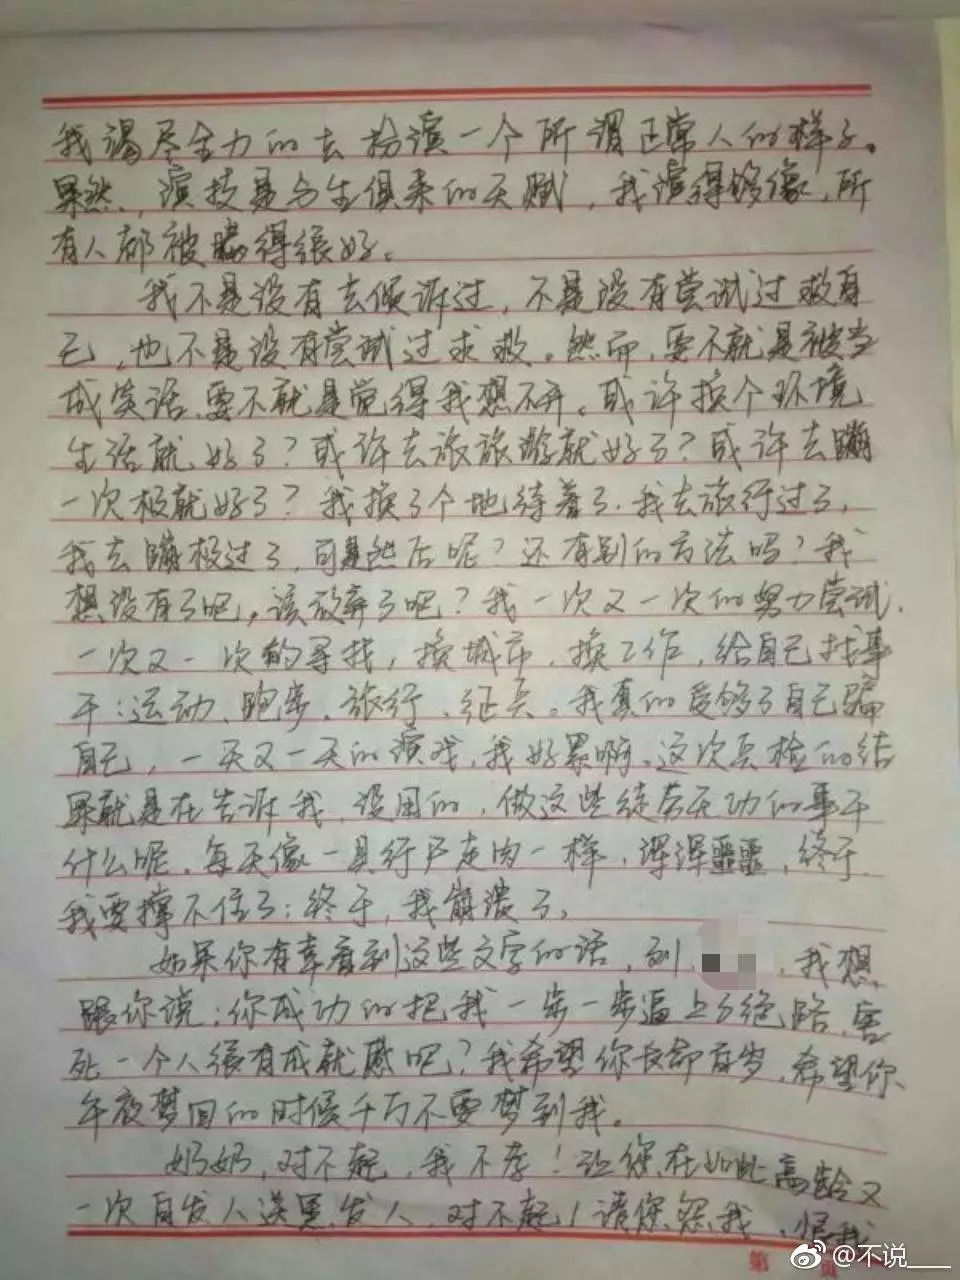 我竭尽全力的去扮演一个所谓正常人的样子。
果然，演技是与生俱来的天赋，我演得够像，所
有人都被瞒得很好。
我不是没有去倾诉过，不是没有尝试过救自
己，也不是没有尝试过求救。然而，要不就是被当
成笑话，要不就是觉得我想不开。或许换个环境
生活就好了？或许去旅旅游就好了？或许去蹦
一次极就好了？我换了个地待着了，我去旅行过了，
我去蹦极过了，可是然后呢？还有别的方法吗？我
想没有了吧。该放弃了吧？我一次又一次的努力尝试，
一次又一次的寻找，换城市，换工作，给自己找事
干：运动、跑步、旅行、征兵。我真的受够了自己骗
自己，一天又一天的演戏，我好累啊。这次兵检的结
果就是在告诉我，没用的，做这些徒劳无功的事干
什么呢。每天像一具行尸走肉一样，浑浑噩噩，终于，
我要撑不住了；终于，我崩溃了。
如果你有幸看到这些文字的话，刘，我想
跟你说：你成功的把我一步一步逼上了绝路，害
死一个人很有成就感吧？我希望你长命百岁，希望你
午夜梦回的时候千万不要梦到我。
奶奶，对不起，我不孝！让您在如此高龄又
一次白发人送黑发人，对不起！请您怨我，恨我
第 页
@不说___